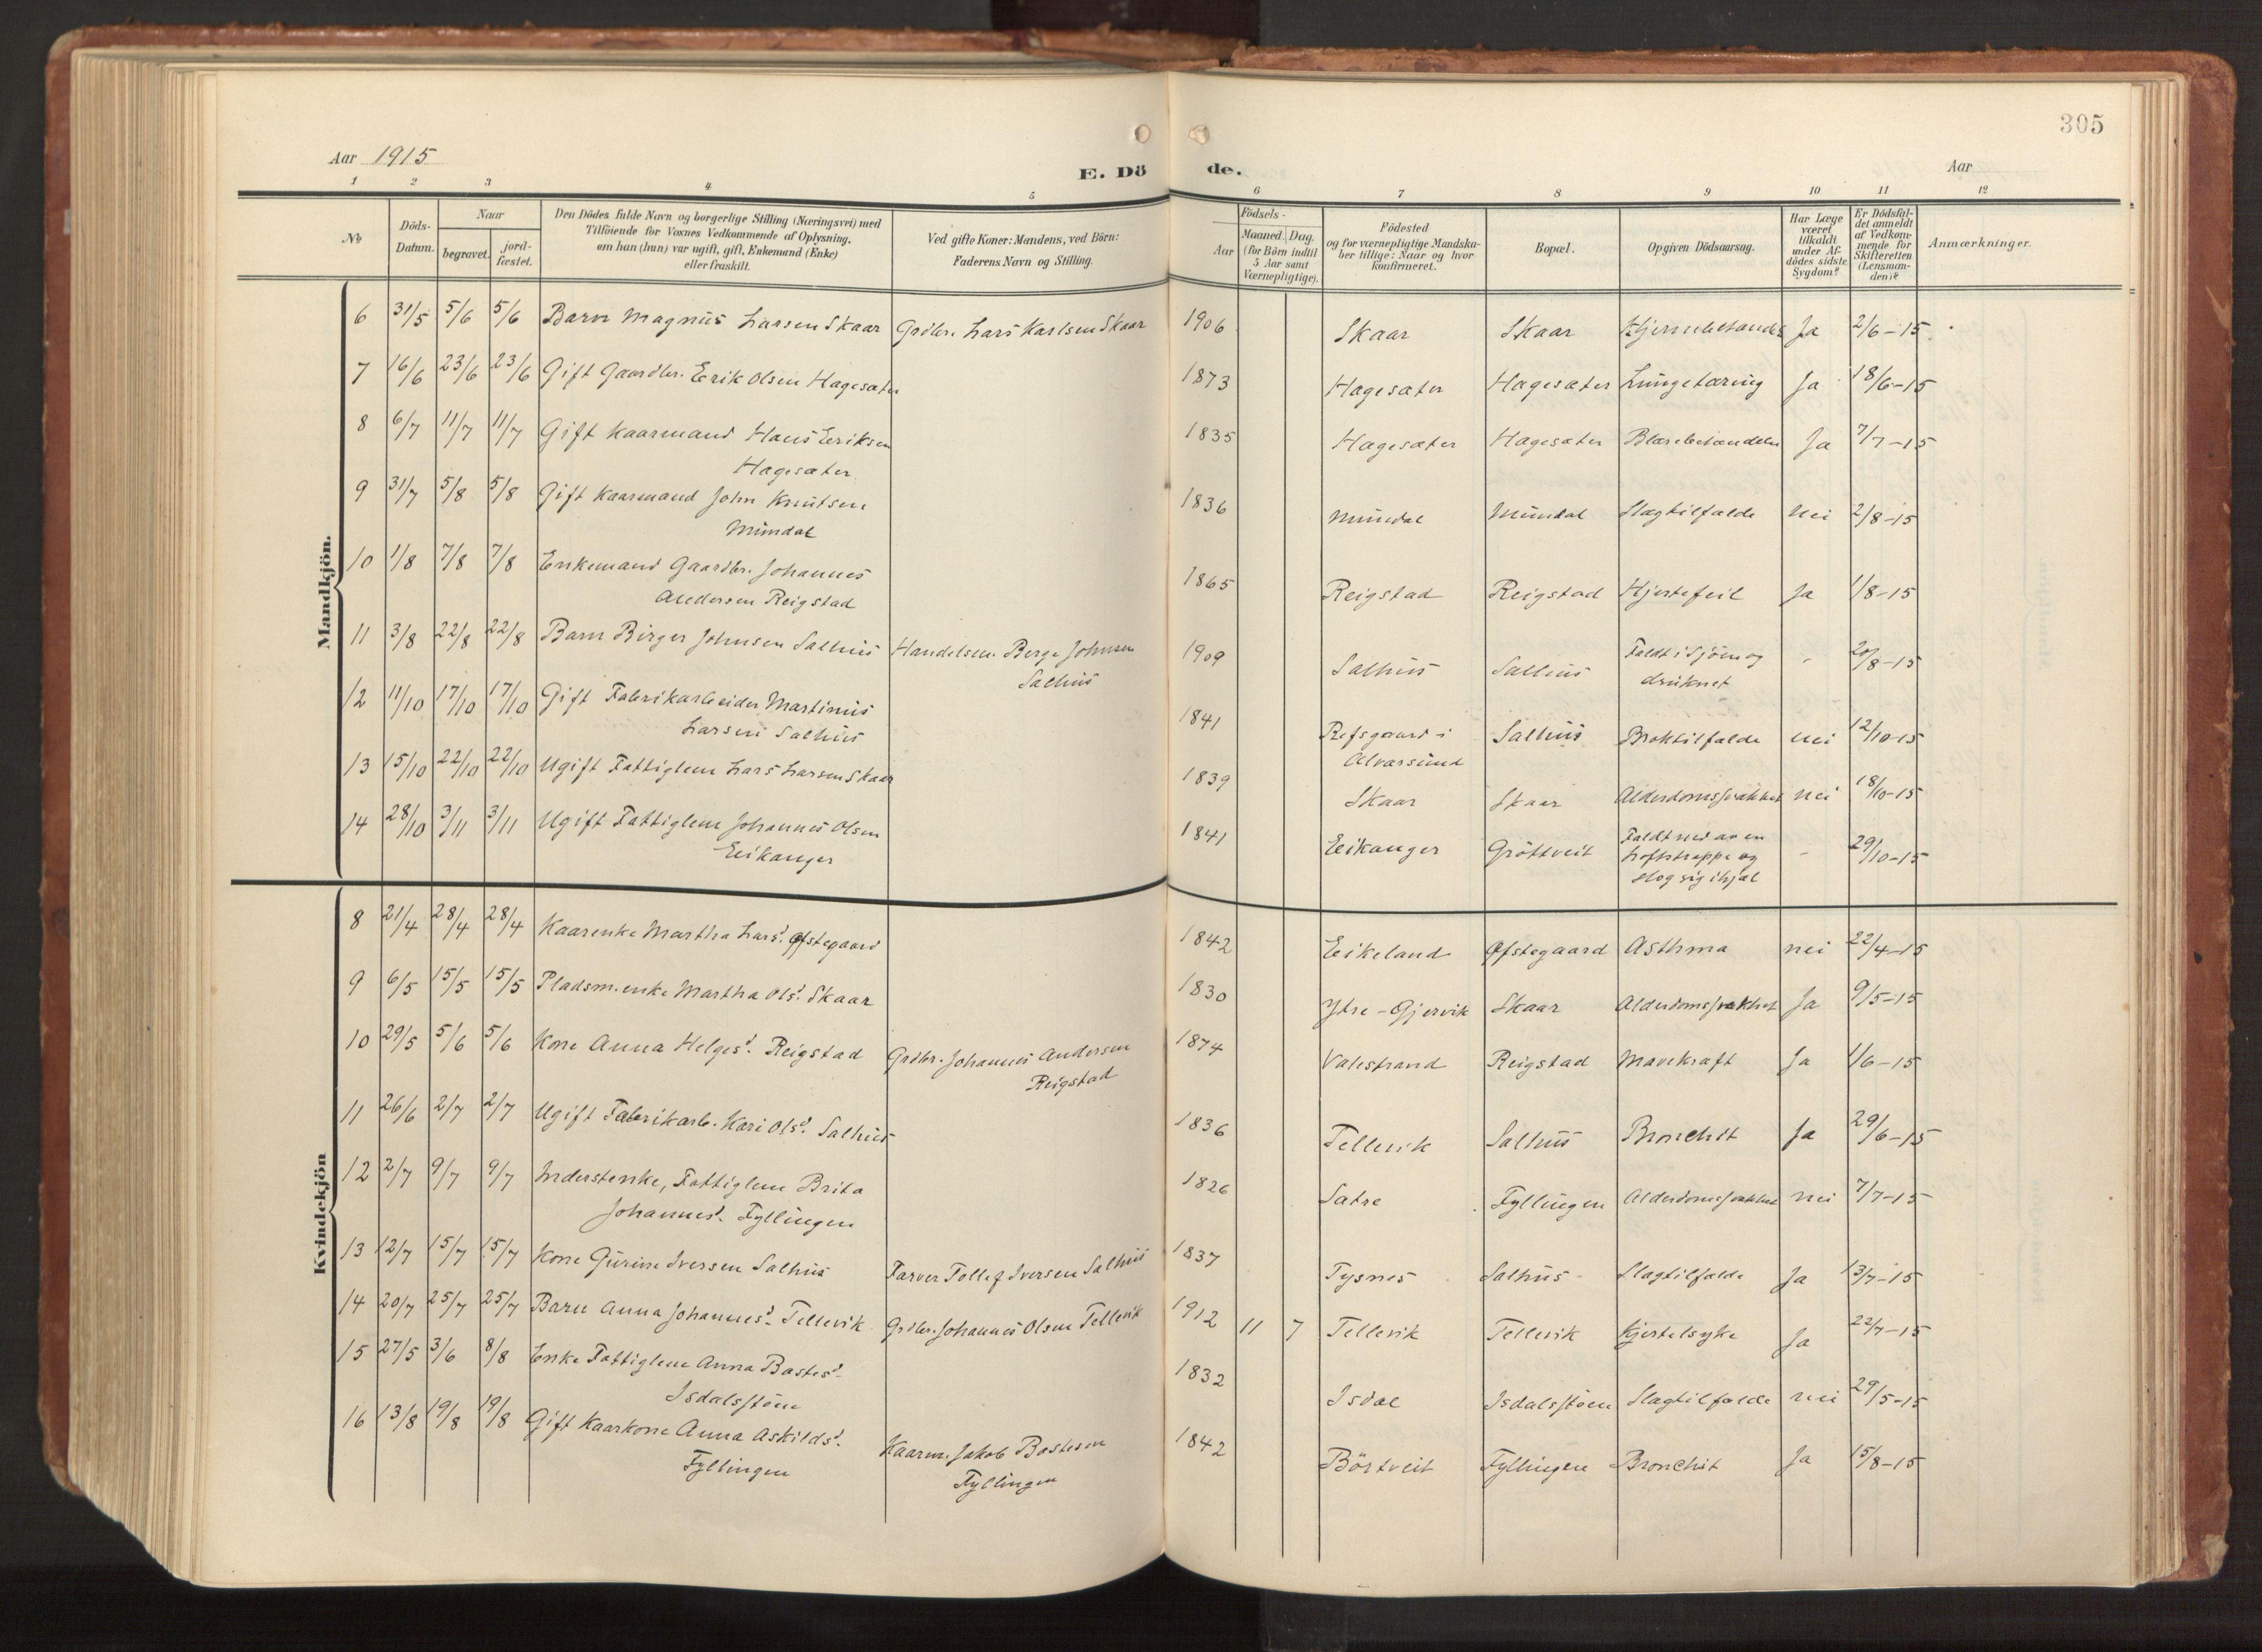 305
Aar 1915
E. Dö de.
Aar
1 2 3 4 5 6 7 8 9 10 11 12
No
Döds-Datum.
Naar
begravet.
jord-fæstet.
Den Dödes fulde Navn og borgerlige Stilling (Næringsvei) med
Tilföiende for Voxnes Vedkommende af Oplysning,
om han (hun) var ugift, gift, Enkemand (Enke)
eller fraskilt.
Ved gifte Koner: Mandens, ved Börn:
Faderens Navn og Stilling.
Födsels-
Aar
Maaned. Dag.
(for Börn indtil
5 Aar samt
Værnepligtige).
Födested
og for værnepligtige Mandska-
ber tillige: Naar og hvor
konfirmeret.
Bopæl.
Opgiven Dödsaarsag.
Har Læge
været
tilkaldt
under Af-
dödes sidste
Sygdom?
Er Dödsfal-
det anmeldt
af Vedkom-
mende for
Skifteretten
(Lensman-
den)?
Anmærkninger.
Mandkjön.
6 31/5 5/6 5/6 Barn Magnus Larsen Skaar Grdbr. Lars Karlsen Skaar 1906 Skaar Skaar Ja 2/6-15
7 16/6 23/6 23/6 Gift Gaardbr. Erik Olsen Hagesæter 1873 Hagesæter Hagesæter Lungetæring Ja 18/6-15
8 6/7 11/7 11/7 Gift Kaarmand Hans Eriksen 1835 Hagesæter Hagesæter Blærebetændelse Ja 7/7-15
Hagesæter
9 31/7 5/8 5/8 Gift Kaarmand John Knutsen 1836 Mundal Mundal Slagtilfælde Nei 2/8-15
Mundal
10 1/8 7/8 7/8 Enkemand Gaardbr. Johannes 1865 Reigstad Reigstad Hjertefeil Ja 1/8-15
Andersen Reigstad
11 3/8 22/8 22/8 Barn Birger Johnsen Salhus Handelsm. Berge Johnsen 1909 Salhus Salhus Faldt i Sjöen og - 20/8-15
Salhus druknet
12 11/10 17/10 17/10 Gift Fabrikarbeider Martinus 1841 Refsgaard i Salhus Broktilfælde nei 12/10-15
Larsen Salhus Alversund
13 15/10 22/10 22/10 Ugift Fattiglem Lars Larsen Skaar 1839 Skaar Skaar Alderdomssvakhet nei 18/10-15
14 28/10 3/11 3/11 Ugift Fattiglem Johannes Olsen 1841 Eikanger Gröttveit Faldt ned av en - 29/10-15
Eikanger Loftstrappe og
slog sig ihjel
Kvindekjön
8 21/4 28/4 28/4 Kaarenke Martha Larsd. Øfstegaard 1842 Eikeland Øfstegaard Asthma nei 22/4-15
9 6/5 15/5 15/5 Pladsm.enke Martha Olsd. Skaar 1830 Ytre-Gjervik Skaar Alderdomssvakhet Ja 9/5-15
10 29/5 5/6 5/6 Kone Anna Helgesd. Reigstad Grdbr. Johannes Andersen 1874 Valestrand Reigstad Mavekraft Ja 1/6-15
Reigstad
11 26/6 2/7 2/7 Ugift Fabrikarb. Kari Olsd. Salhus 1836 Tellevik Salhus Bronchit Ja 29/6-15
12 2/7 9/7 9/7 Inderstenke, Fattiglem Brita 1826 Sætre Fyllingen Alderdomssvakhet nei 7/7-15
Johannesd. Fyllingen
13 12/7 15/7 15/7 Kone Gurine Iversen Salhus Farver Tollef Iversen Salhus 1837 Tysnes Salhus Slagtilfælde Ja 13/7-15
14 20/7 25/7 25/7 Barn Anna Johannesd. Tellevik Grdbr. Johannes Olsen Tellevik 1912 11 7 Tellevik Tellevik Kjertelsyke Ja 22/7-15
15 27/5 3/6 8/8 Enke Fattiglem Anna Bastesd. 1832 Isdal Isdalsstöen Slagtilfælde nei 29/5-15
Isdalsstöen
16 13/8 19/8 19/8 Gift Kaarkone Anna Askildsd. Kaarm. Jakob Bastesen 1842 Börtveit Fyllingen Bronchit Ja 15/8-15
Fyllingen Fyllingen